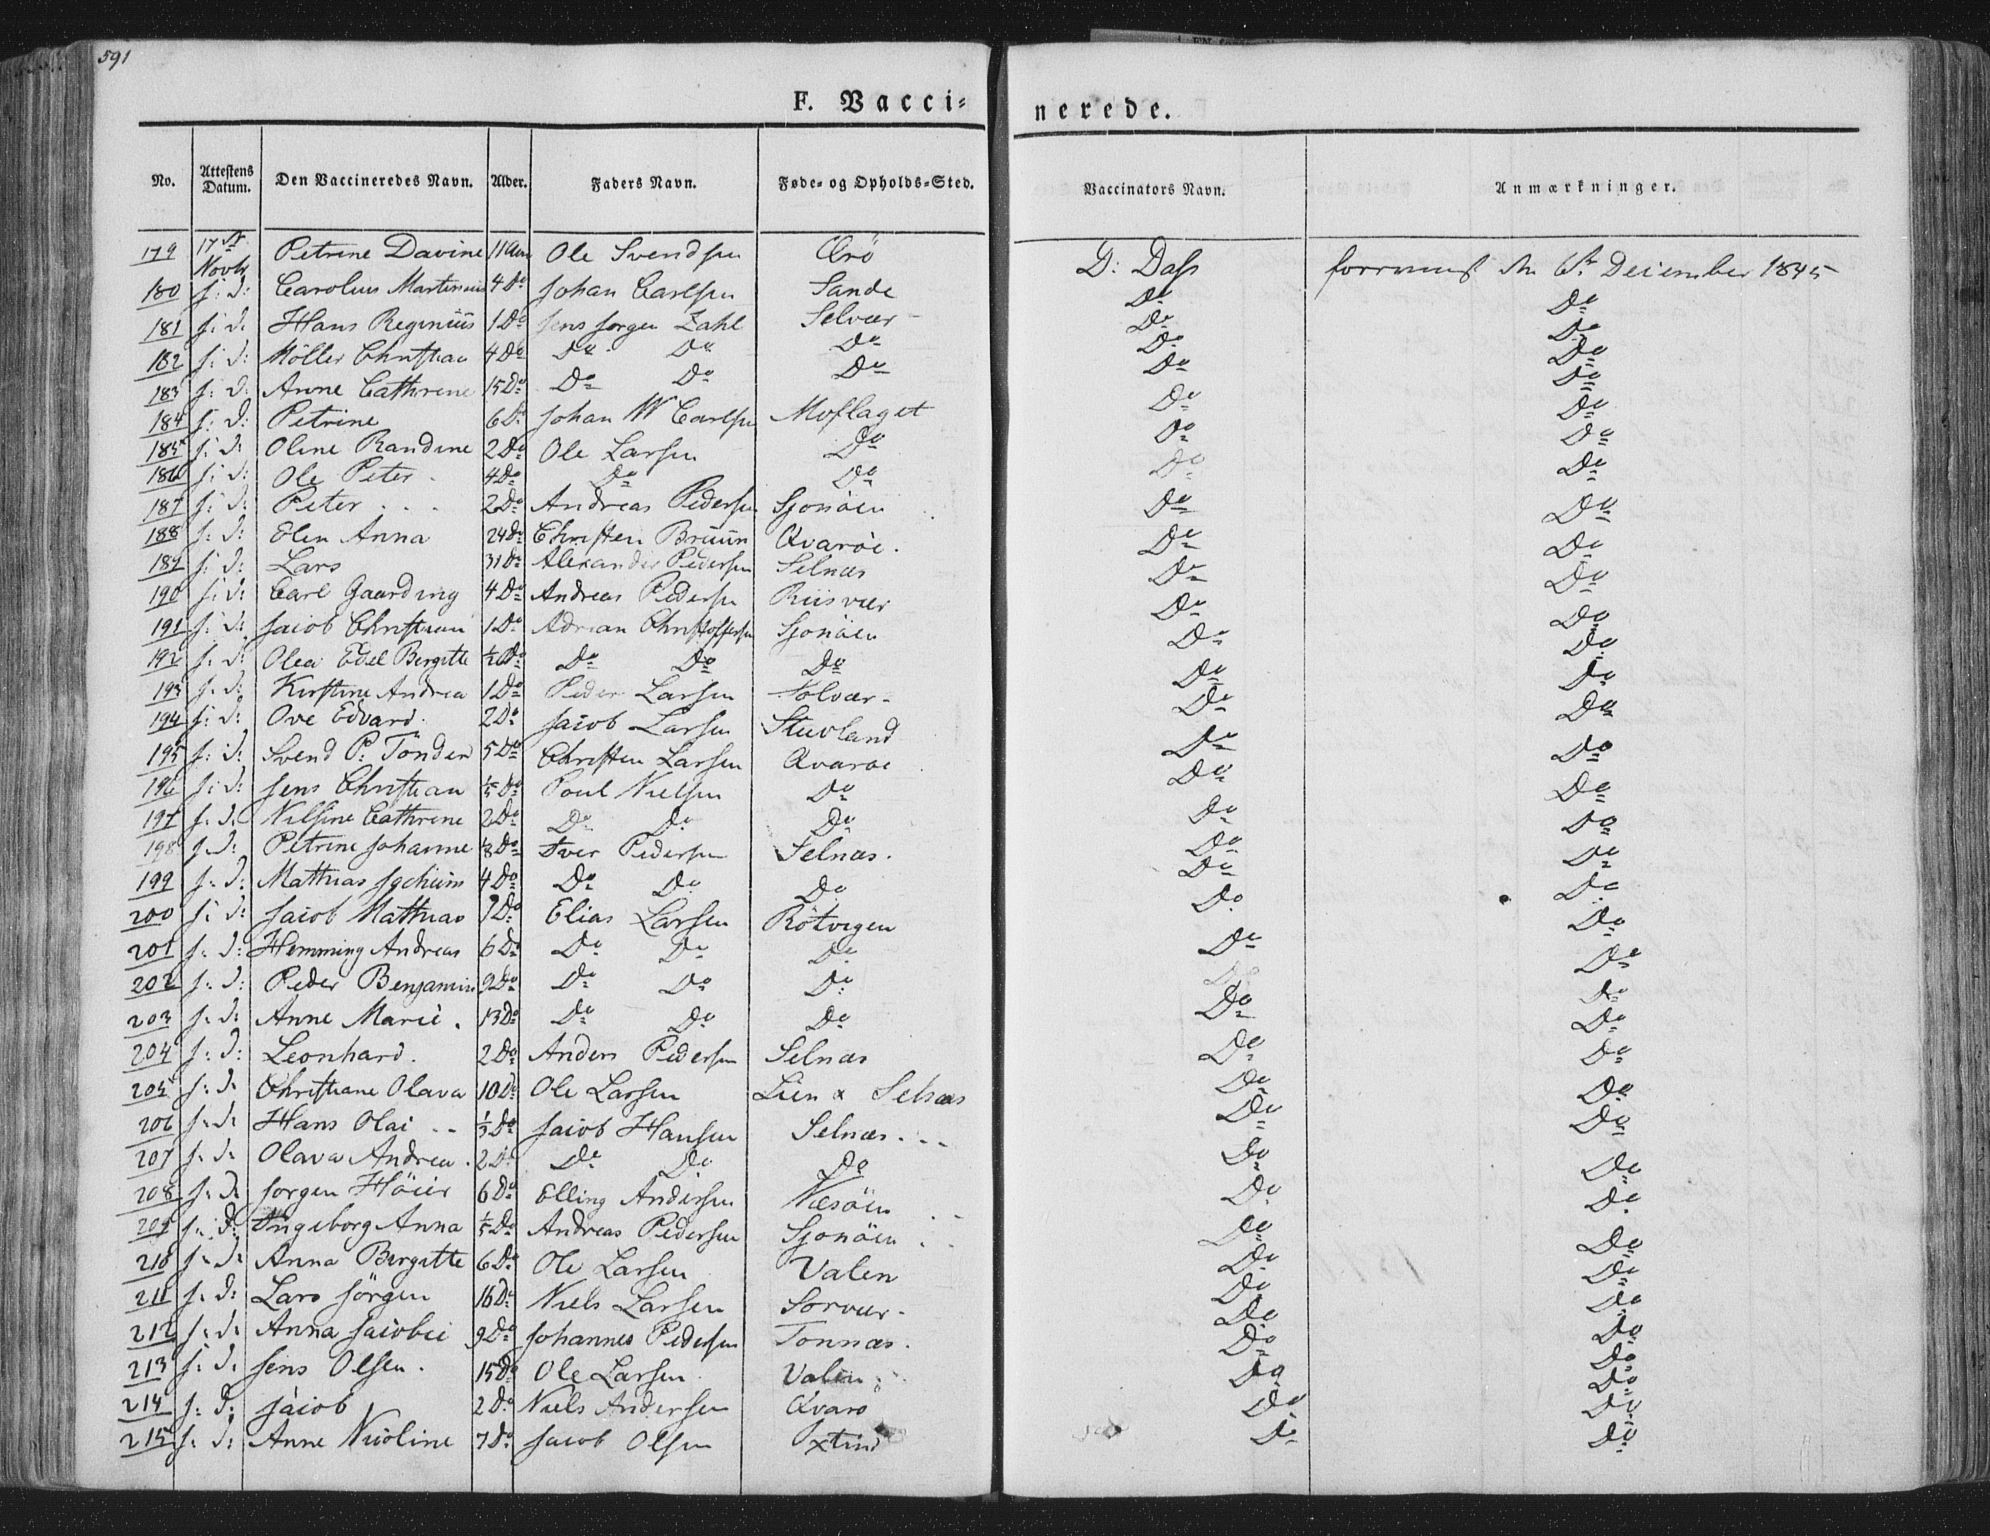 591
F. Vacci-
nerede.
No. Attestens Datum. Den Vaccineredes Navn. Alder. Faders Navn. Føde- og Opholds-Sted. Vaccinators Navn. Anmærkninger.
179 17de Novbr Petrine Davine 11 Aar Ole Svendsen Orö D: Dass den 6te December 1845
180 s: D: Carolus Martinus 4 Do Johan Carlsen Sande Do Do
181 s: D: Hans Reginius 1 Do Jens Jörgen Zahl Selvær Do Do
182 s: D: Möller Christian 4 Do Do Do Do Do Do
183 s: D: Anne Cathrine 15 Do Do Do Do Do Do
184 s: D: Petrine 6 Do Johan W Carlsen Moflaget Do Do
185 s: D: Oline Randine 2 Do Ole Larsen Do Do Do
186 s: D: Ole Peter 4 Do Do Do Do Do
187 s: D: Peter 2 Do Andreas Pedersen Sjonöen Do Do
188 s: D: Elen Anna 24 Do Christen Bruun Qvaröe. Do Do
189 s: D: Lars 31 Do Alexander Pedersen Selnæs Do Do
190 s: D: Carl Gaarding 4 Do Andreas Pedersen Riisvær Do Do
191 s: D: Jacob Christian 1 Do Adrian Christoffersen Sjonöen Do Do
192 s: D: Olea Edel Bergitte ½ Do Do Do Do Do Do
193 s: D: Kirstine Andrea 1 Do Peder Larsen Solvær Do Do
194 s: D: Ove Edvard. 2 Do Jacob Larsen Stuvland Do Do
195 s: D: Svend P: Tönder 5 Do Christen Larsen Qvaröe Do Do
196 s: D: Jens Christian ½ Do Poul Nielsen Do Do Do
197 s: D: Nilsine Cathrine 2 Do Do Do Do Do Do
198 s: D: Petrine Johanne Do Iver Pedersen Selnæs. Do Do
199 s: D: Mathias Jochum 4 Do Do Do Do Do Do
200 s: D: Jacob Mathias 7 Do Elias Larsen Rötvigen Do Do
201 s: D: Hemming Andreas 6 Do Do Do Do Do Do
202 s: D: Peder Benjamin 9 Do Do Do Do Do Do
203 s: D: Anne Marie. 13 Do Do Do Do Do Do
204 s: D: Leonhard. 2 Do Anders Pedersen Selnæs Do Do
205 s: D: Christiane Olava 10 Do Ole Larsen Lien x Selnæs Do Do
206 s: D: Hans Olai Do Jacob Hansen Selnæs Do Do
207 s: D: Olava Andrea. 2 Do Do Do Do Do Do
208 s: D: Jörgen Höier 6 Do Elling Andersen Næsöen Do Do
209 s: D: Ingeborg Anna Do Andreas Pedersen Sjonöen Do Do
210 s: D: Anna Bergitte 6 Do Ole Larsen Valen Do Do
211 s: D: Lars Jörgen 16 Do Niels Larsen Sorvær Do Do
212 s: D: Anna Jacobei 9 Do Johannes Pedersen Tonnæs. Do Do
213 s: D: Jens Olsen. 15 Do Ole Larsen Valen Do Do
214 s: D: Jacob 2 Do Niels Andersen Qvarö Do Do
215 s: D: Anne Nicoline 7 Do Jacob Olsen xtind Do Do